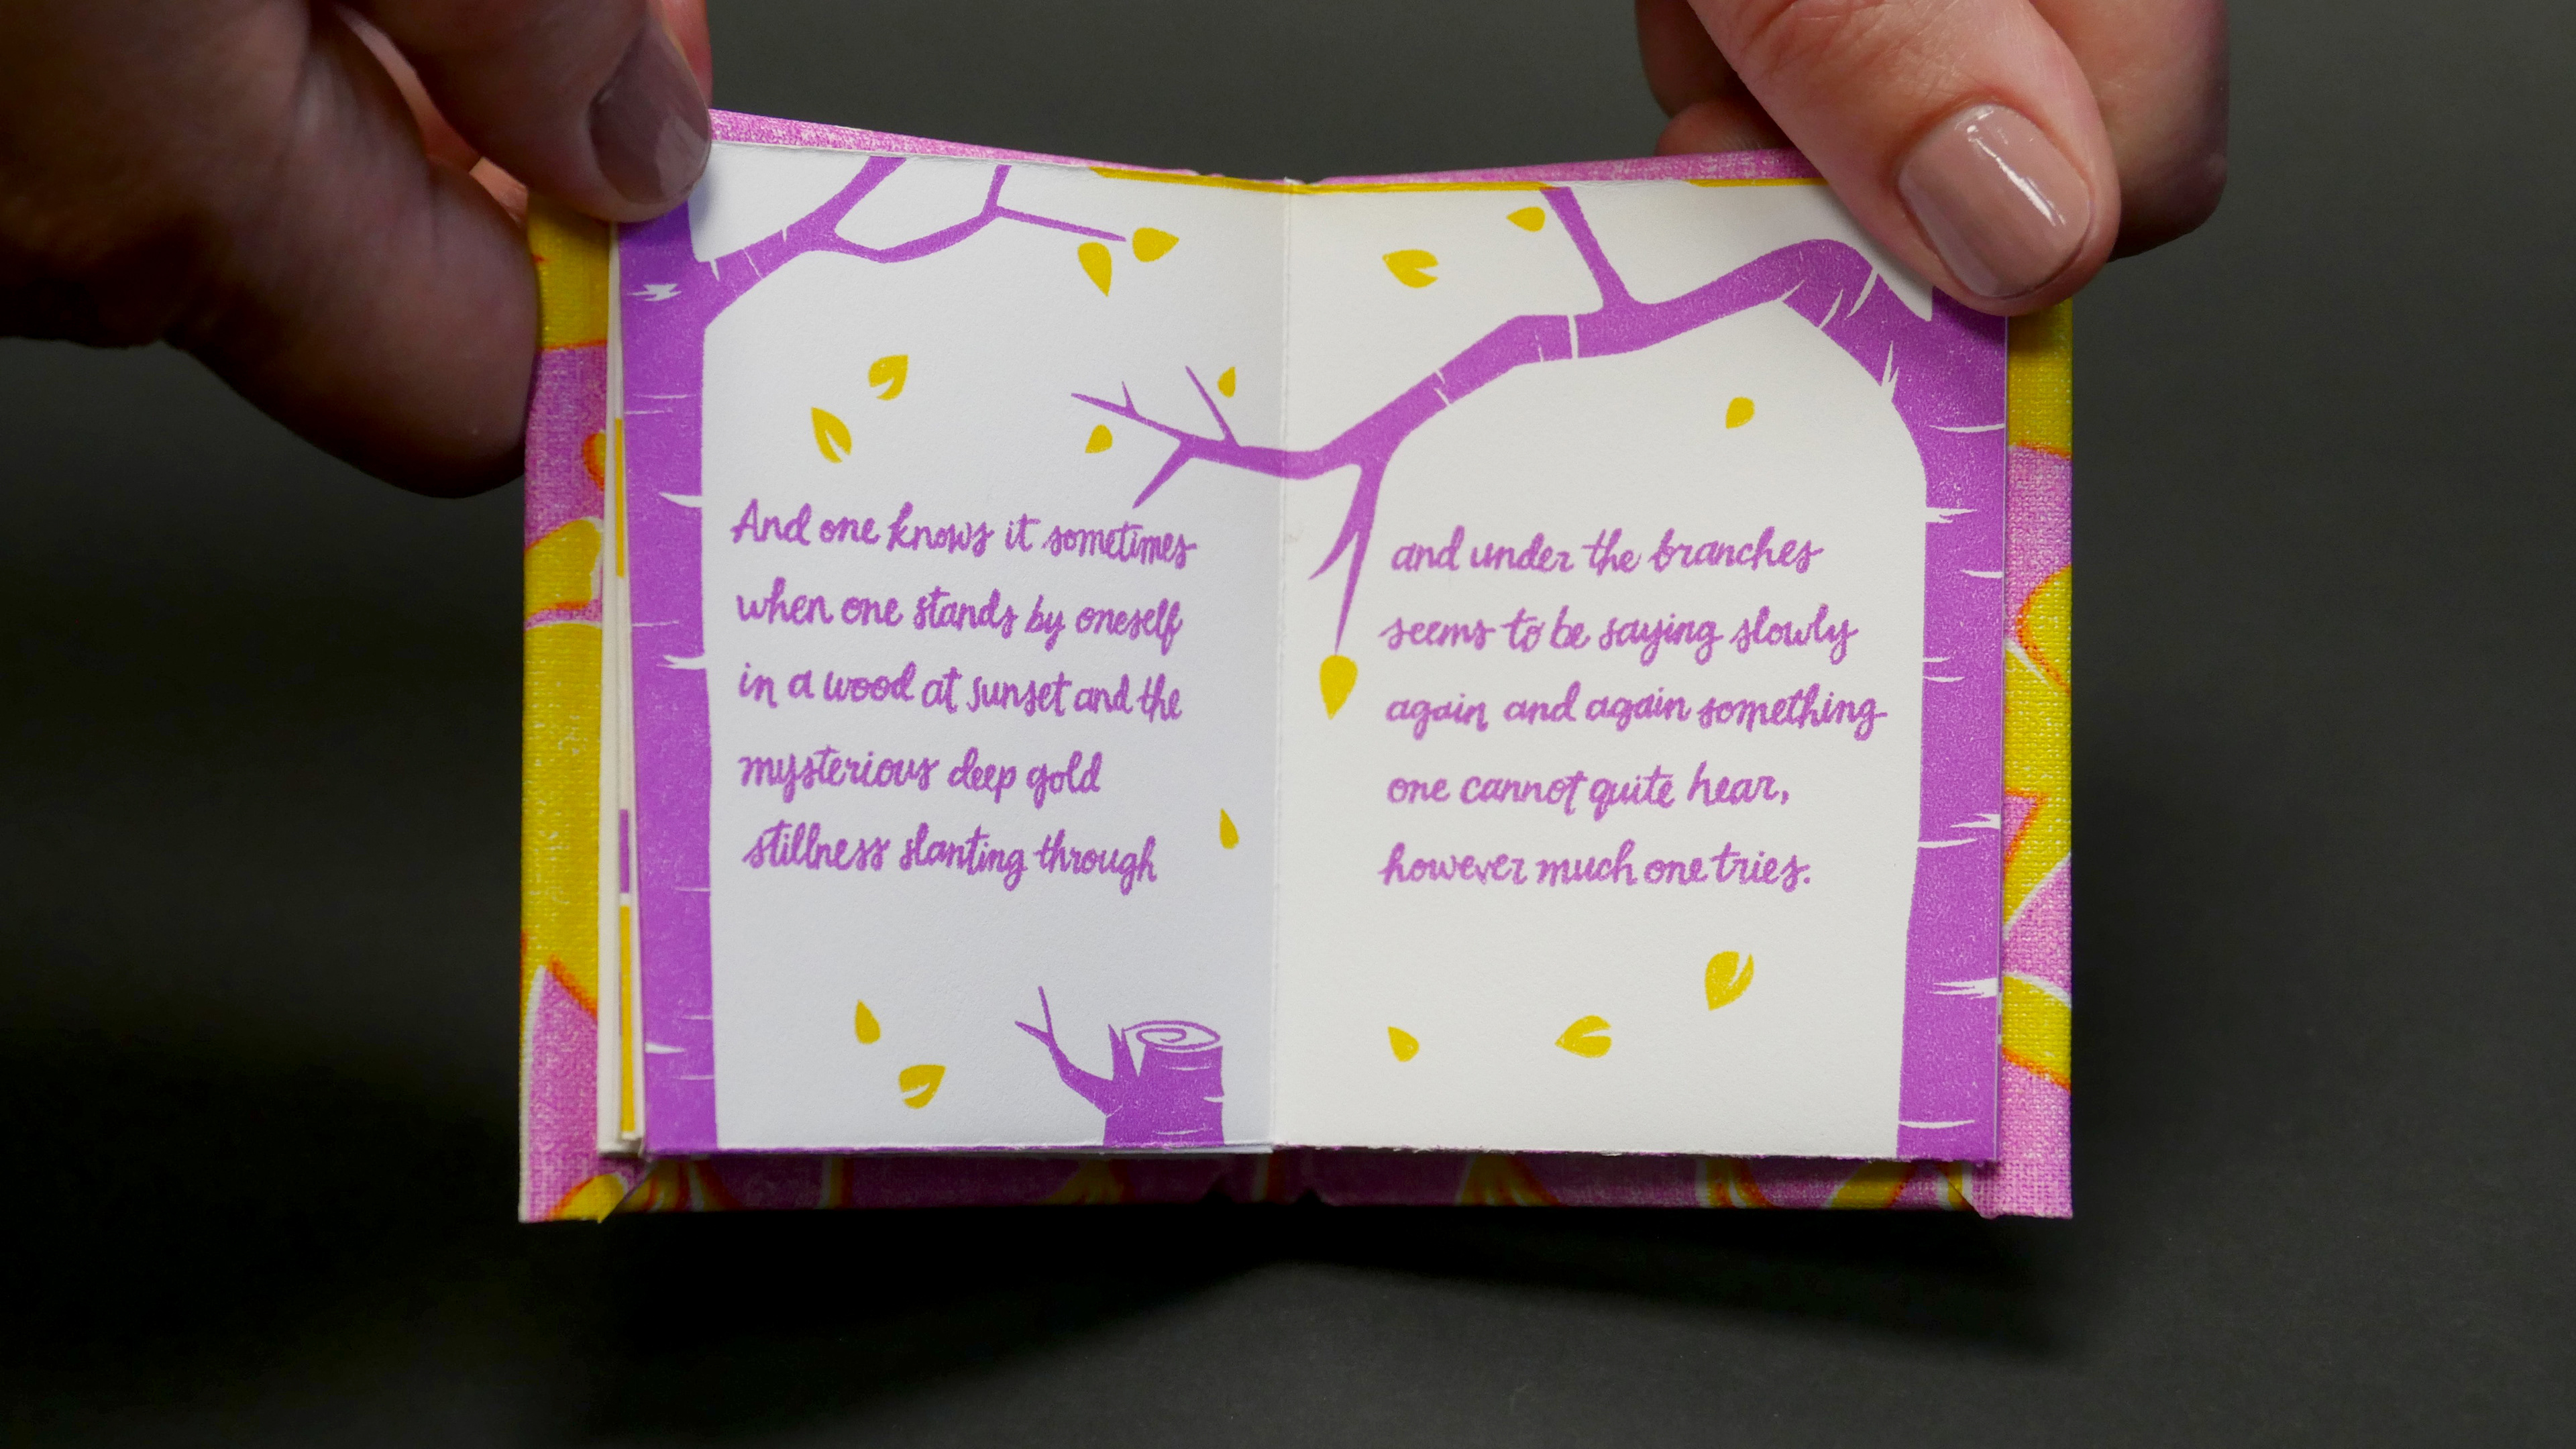 And one knows it sometimes
when one stands by oneself
in a wood at sunset and the
mysterious deep gold
stillness slanting through
and under the branches
seems to be saying slowly
again and again something
one cannot quite hear,
however much one tries.